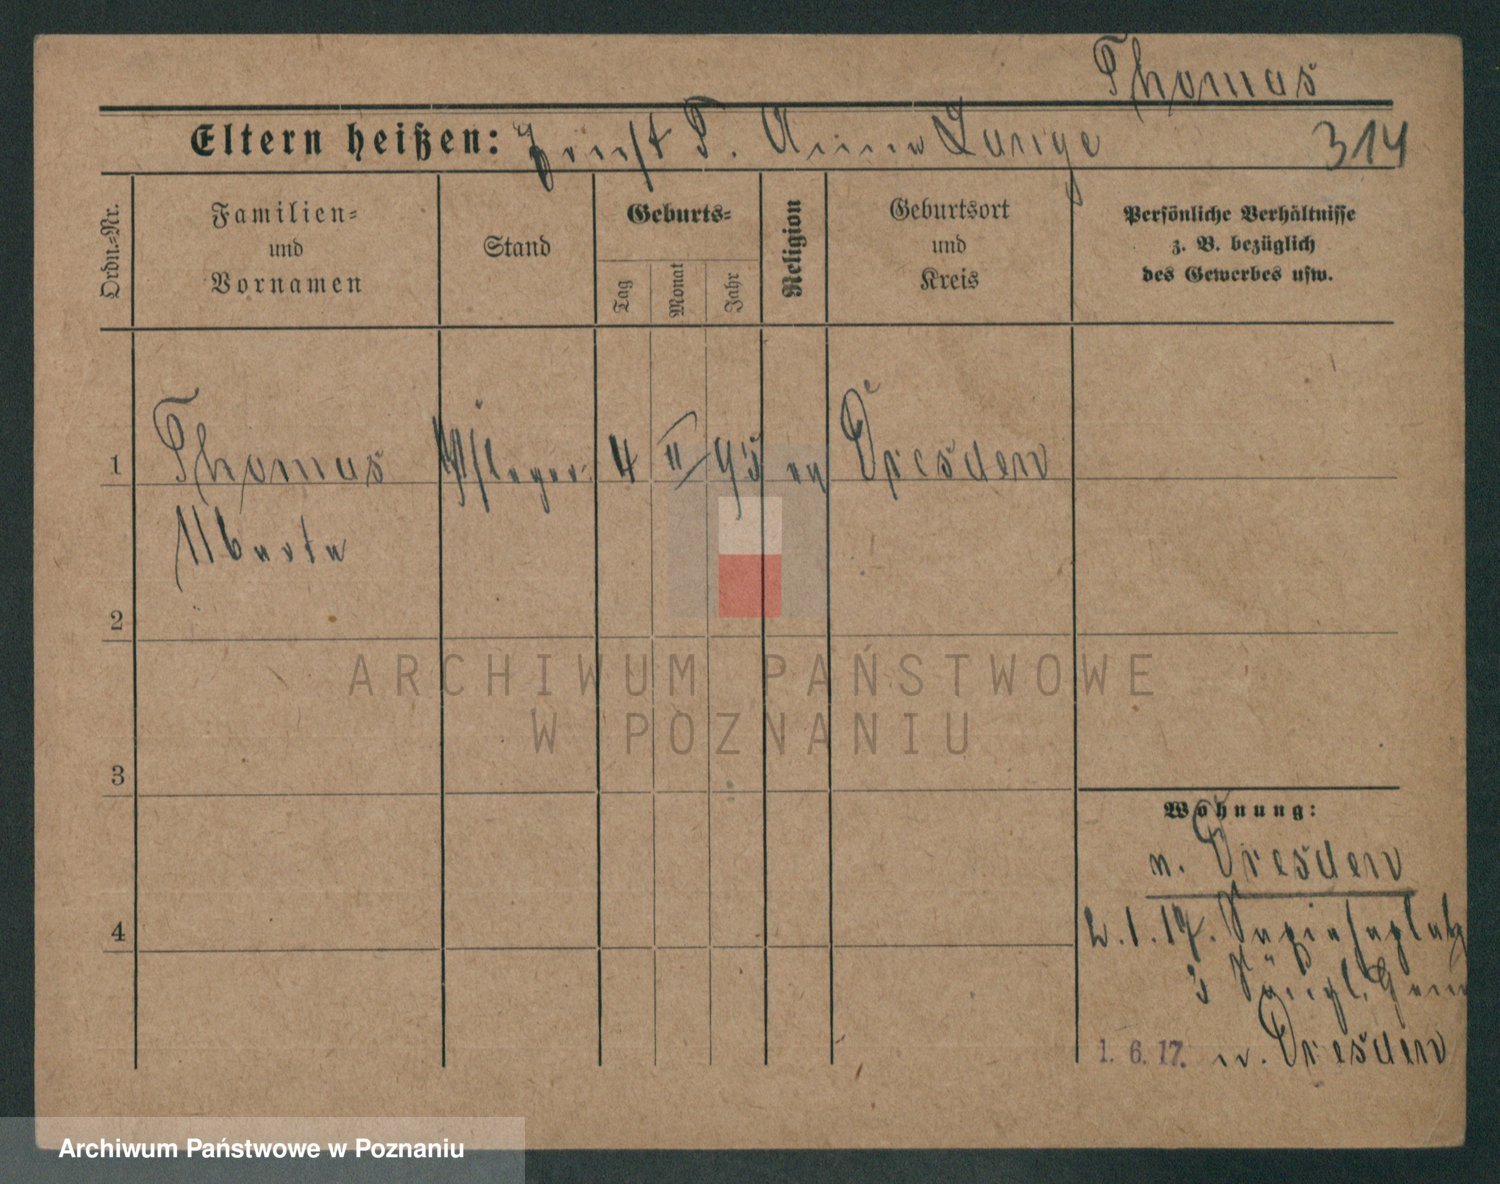 Thomas
Eltern heißen: Ernst T. Anna Lange 314
Ordn.=Nr.
Familien=
und
Vornamen
Stand
Geburts=
Tag
Monat
Jahr
Religion
Geburtsort
und
Kreis
Persönliche Verhältnisse
z. B. bezüglich
des Gewerbes usw.
1 Thomas 4 II 95 ev Dresden
2
3
4
Wohnung:
n. Dresden
2.1.17.
3
1. 6. 17. n. Dresden
ARCHIWUM PAŃSTWOWE
W POZNANIU
Archiwum Państwowe w Poznaniu